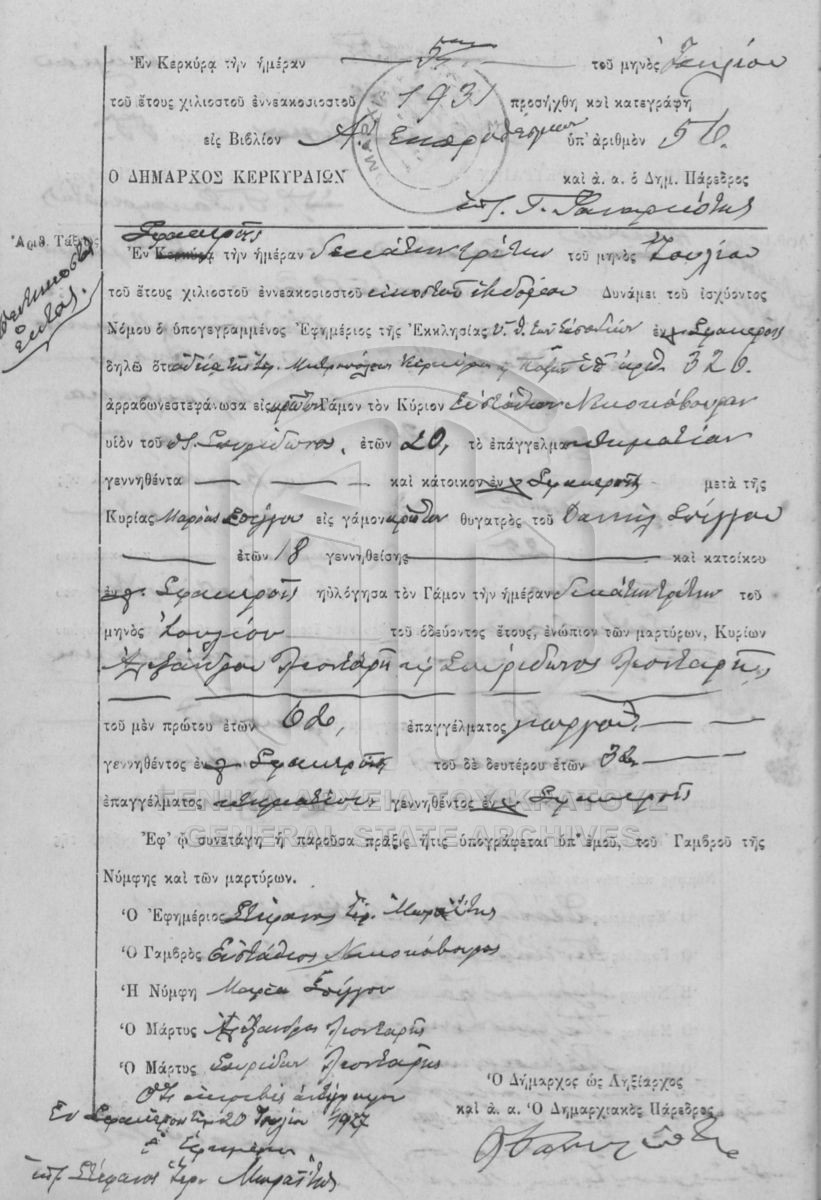 Ἐν Κερκύρᾳ τὴν ἡμέραν τοῦ μηνὸς Ἰουλίου
τοῦ ἔτους χιλιοστοῦ ἐννεακοσιοστοῦ 1931 προσήχθη καὶ κατεγράφη
εἰς Βιβλίον Α. Ἐκπροθέσμων ὑπ' ἀριθμὸν 56.
Ο ΔΗΜΑΡΧΟΣ ΚΕΡΚΥΡΑΙΩΝ καὶ ἀ. ἀ. ὁ Δημ. Πάρεδρος
Σφακερᾶς
Ἀριθ. Τάξεως Ἐν Κερκύρᾳ τὴν ἡμέραν δεκάτην τρίτην τοῦ μηνὸς Ἰουλίου
πεντηκοστὸν ἕκτον.
τοῦ ἔτους χιλιοστοῦ ἐννεακοσιοστοῦ εἰκοστοῦ ἑβδόμου Δυνάμει τοῦ ἰσχύοντος
Νόμου ὁ ὑπογεγραμμένος Ἐφημέριος τῆς Ἐκκλησίας Υ. Θ. τῶν Εἰσοδίων ἐν χ. Σφακερᾶς
δηλῶ ὅτι ἀδείᾳ τῆς Ἱερ. Μητροπόλεως Κερκύρας ὑπ' ἀριθ. 326.
ἀρραβωνεστεφάνωσα εἰς πρῶτον Γάμον τὸν Κύριον Εὐστάθιον Νικοκάβουραν
υἱὸν τοῦ π. Σπυρίδωνος, ἐτῶν 20, τὸ ἐπάγγελμα κτηματίαν
γεννηθέντα καὶ κάτοικον ἐν χ. Σφακερᾶς μετὰ τῆς
Κυρίας Μαρίας Σπίγγου εἰς γάμον πρῶτον θυγατρὸς τοῦ Δανιὴλ Σπίγγου
ἐτῶν 18 γεννηθείσης καὶ κατοίκου
ἐν χ. Σφακερᾶς ηὐλόγησα τὸν Γάμον τὴν ἡμέραν δεκάτην τρίτην τοῦ
μηνὸς Ἰουλίου τοῦ ὁδεύοντος ἔτους, ἐνώπιον τῶν μαρτύρων, Κυρίων
Ἀλεξάνδρου Λιονταρῆ καὶ Σπυρίδωνος Λιονταρῆ
τοῦ μὲν πρώτου ἐτῶν 62, ἐπαγγέλματος γεωργοῦ
γεννηθέντος ἐν χ. Σφακερᾶς τοῦ δὲ δευτέρου ἐτῶν 32
ἐπαγγέλματος κτηματίου γεννηθέντος ἐν χ. Σφακερᾶς
ΓΕΝΙΚΑ ΑΡΧΕΙΑ ΤΟΥ ΚΡΑΤΟΥΣ
GENERAL STATE ARCHIVES
Ἐφ' ᾧ συνετάγη ἡ παροῦσα πρᾶξις ἥτις ὑπογράφεται ὑπ' ἐμοῦ, τοῦ Γαμβροῦ τῆς
Νύμφης καὶ τῶν μαρτύρων.
Ὁ Ἐφημέριος Στέφανος Ἱερ. Μωραΐτης
Ὁ Γαμβρὸς Εὐστάθιος Νικοκάβουρας
Ἡ Νύμφη Μαρία Σπίγγου
Ὁ Μάρτυς Ἀλέξανδρος Λιονταρῆς
Ὁ Μάρτυς Σπυρίδων Λιονταρῆς
Ὅτι ἀκριβὲς ἀντίγραφον
Ἐν Σφακερᾷ τῇ 20 Ἰουλίου 1927
Ὁ Ἐφημέριος
ὑπ. Στέφανος Ἱερ. Μωραΐτης
Ὁ Δήμαρχος ὡς Ληξίαρχος
καὶ ἀ. ἀ. Ὁ Δημαρχιακὸς Πάρεδρος